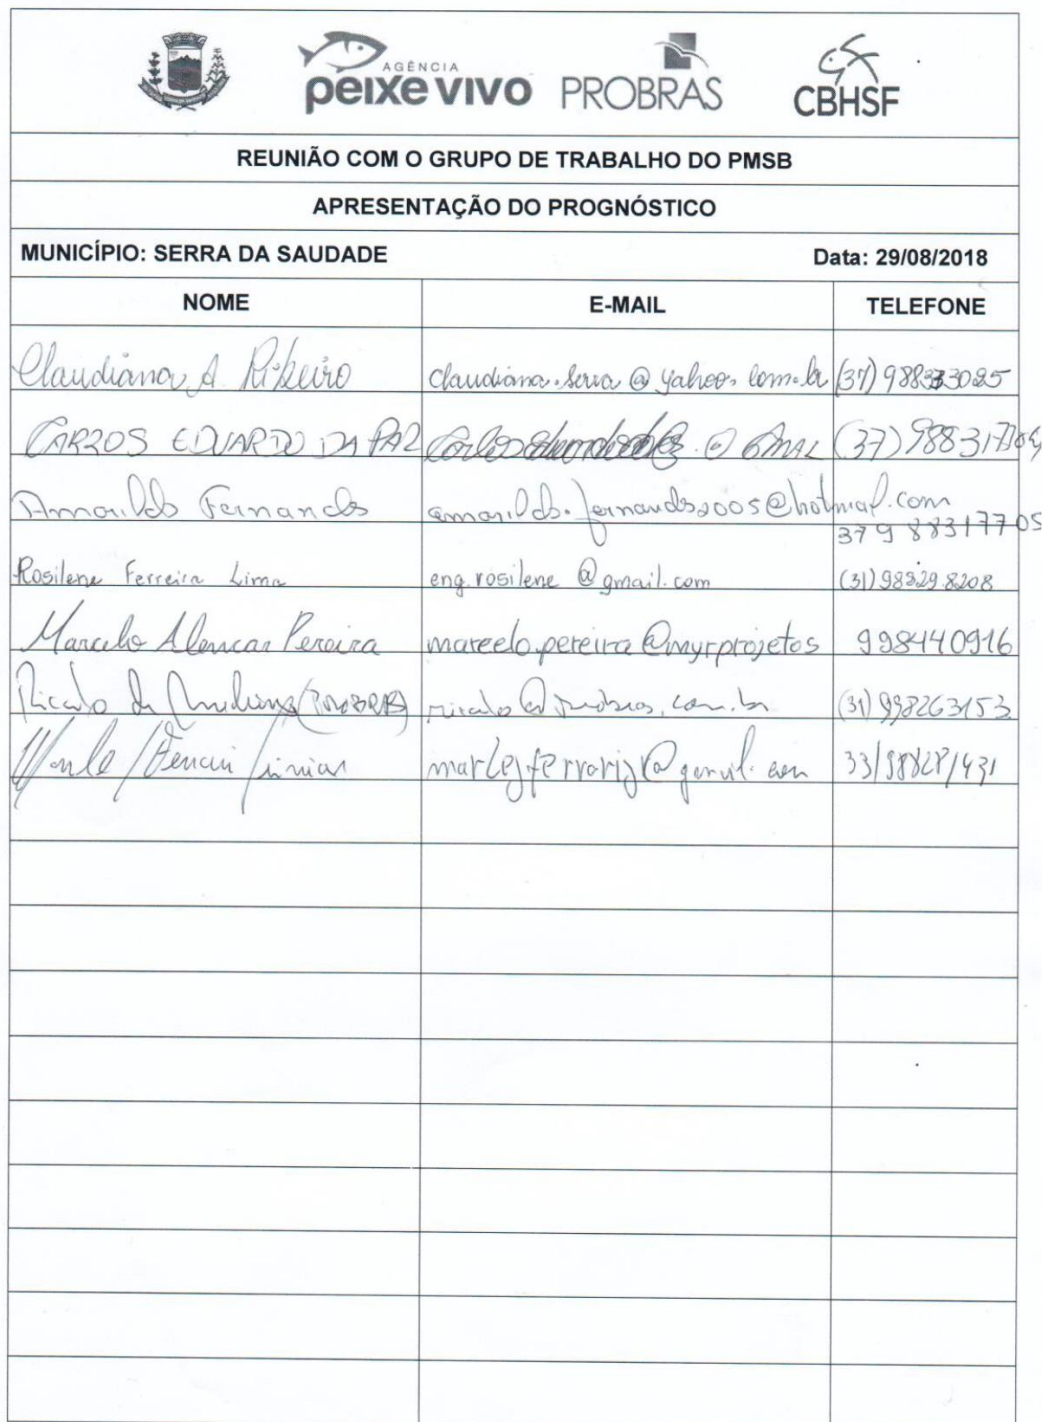 AGÊNCIA
peixe vivo PROBRAS CBHSF
REUNIÃO COM O GRUPO DE TRABALHO DO PMSB
APRESENTAÇÃO DO PROGNÓSTICO
MUNICÍPIO: SERRA DA SAUDADE Data: 29/08/2018
NOME E-MAIL TELEFONE
Claudiana A. Ribeiro claudiana.serra@yahoo.com.br (37) 988333025
CARLOS EDUARDO DA PAZ (37)
Amarildo Fernandes amarildo.fernandes2005@hotmail.com
37 9 88317705
Rosilene Ferreira Lima eng.rosilene@gmail.com (31) 98829.8208
Marcelo Alencar Pereira marcelo.pereira@myrprojetos 998440916
Ricardo de (PROBRAS) ricardo@probras.com.br (31) 998263153